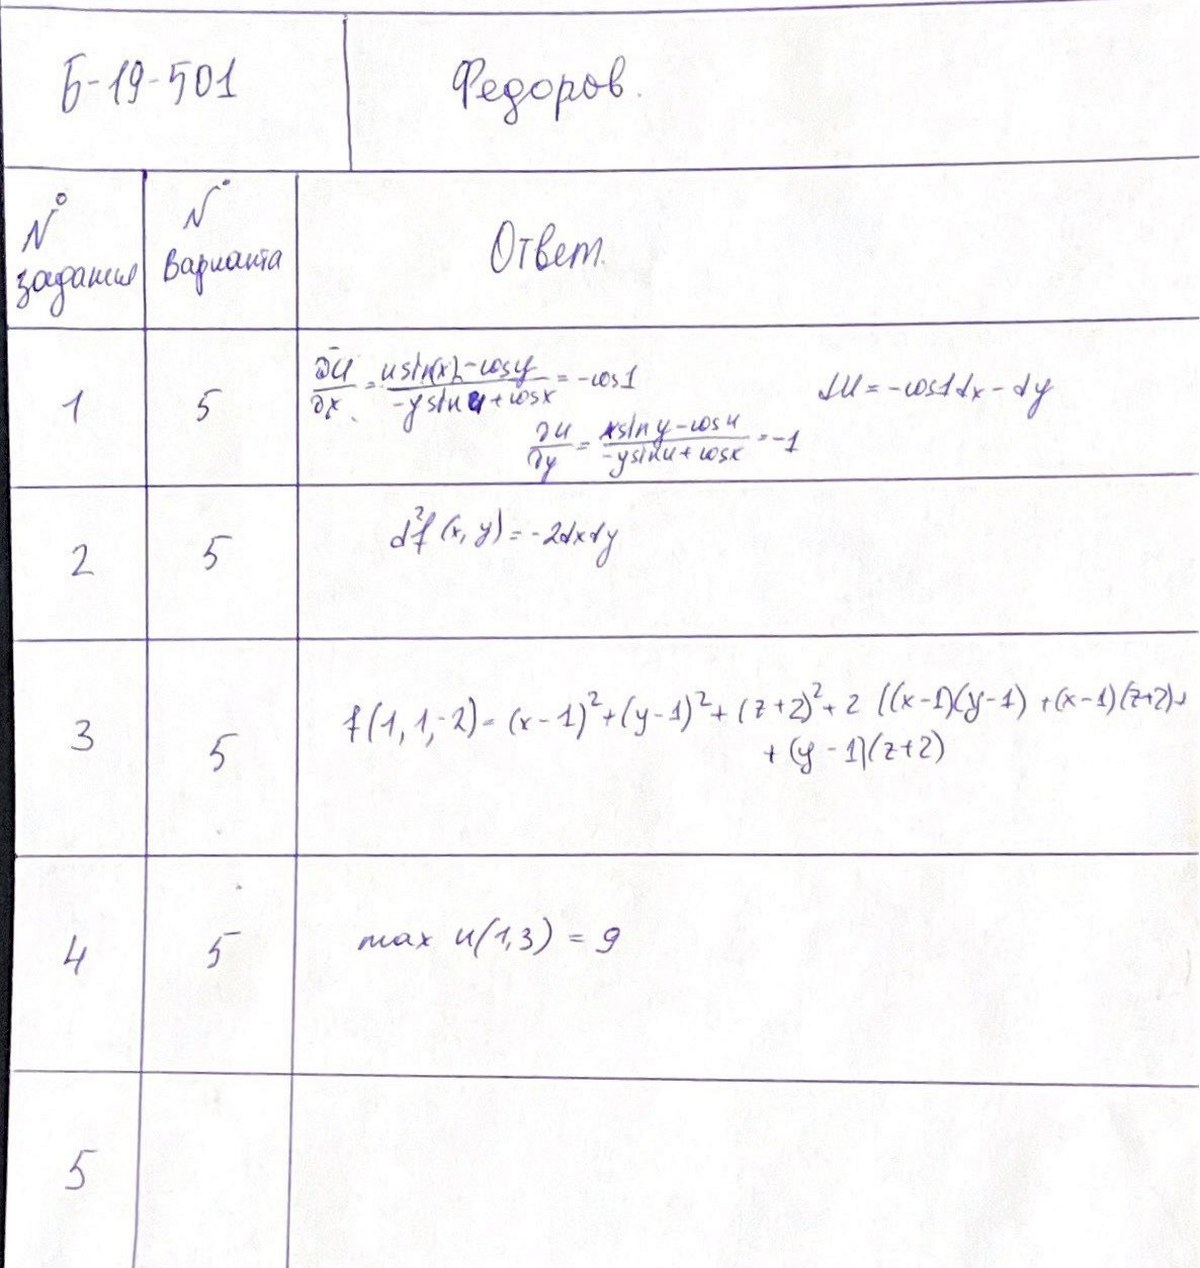 Б-19-501 Федоров.
№ задания № Варианта Ответ.
1 5 ∂u/∂x = (u sin(x) - cosy)/(-y sin u + cosx) = -cos1 du = -cos1dx - dy
∂u/∂y = (x sin y - cos u)/(-y sin u + cosx) = -1
2 5 d²f(x, y) = -2dxdy
3 5 f(1, 1, -2) = (x-1)² + (y-1)² + (z+2)² + 2 ((x-1)(y-1) + (x-1)(z+2) +
+ (y-1)(z+2)
4 5 max u(1,3) = 9
5